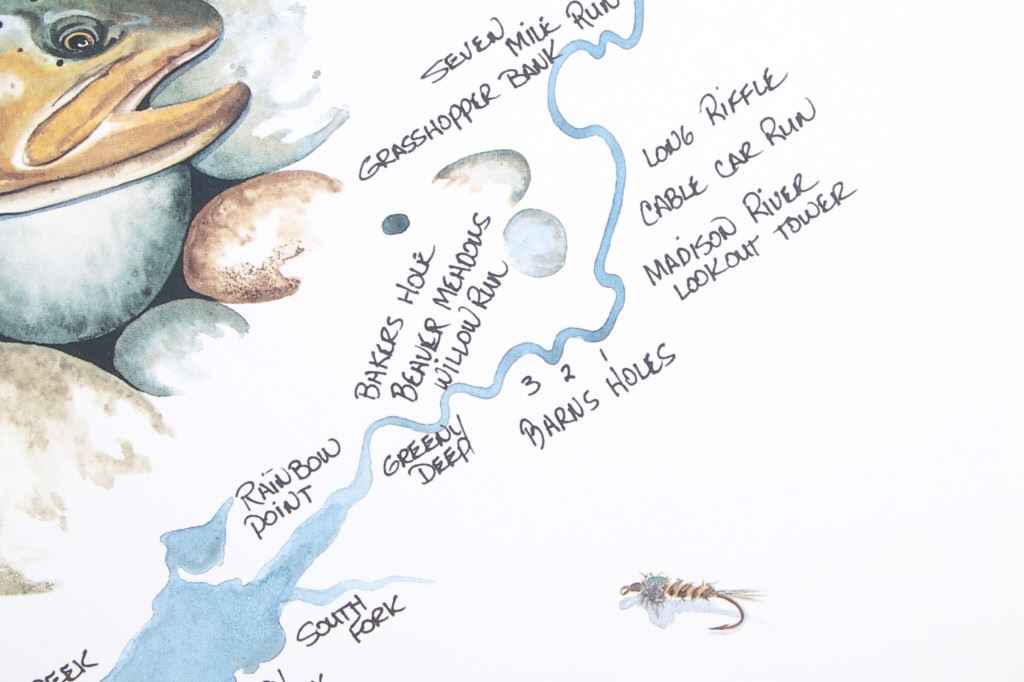 SEVEN MILE RUN
GRASSHOPPER BANK
LONG RIFFLE
CABLE CAR RUN
MADISON RIVER
LOOKOUT TOWER
BAKERS HOLE
BEAVER MEADOWS
WILLOW RUN
3 2 1
BARNS HOLES
GREENY
DEEP
RAINBOW
POINT
SOUTH
FORK